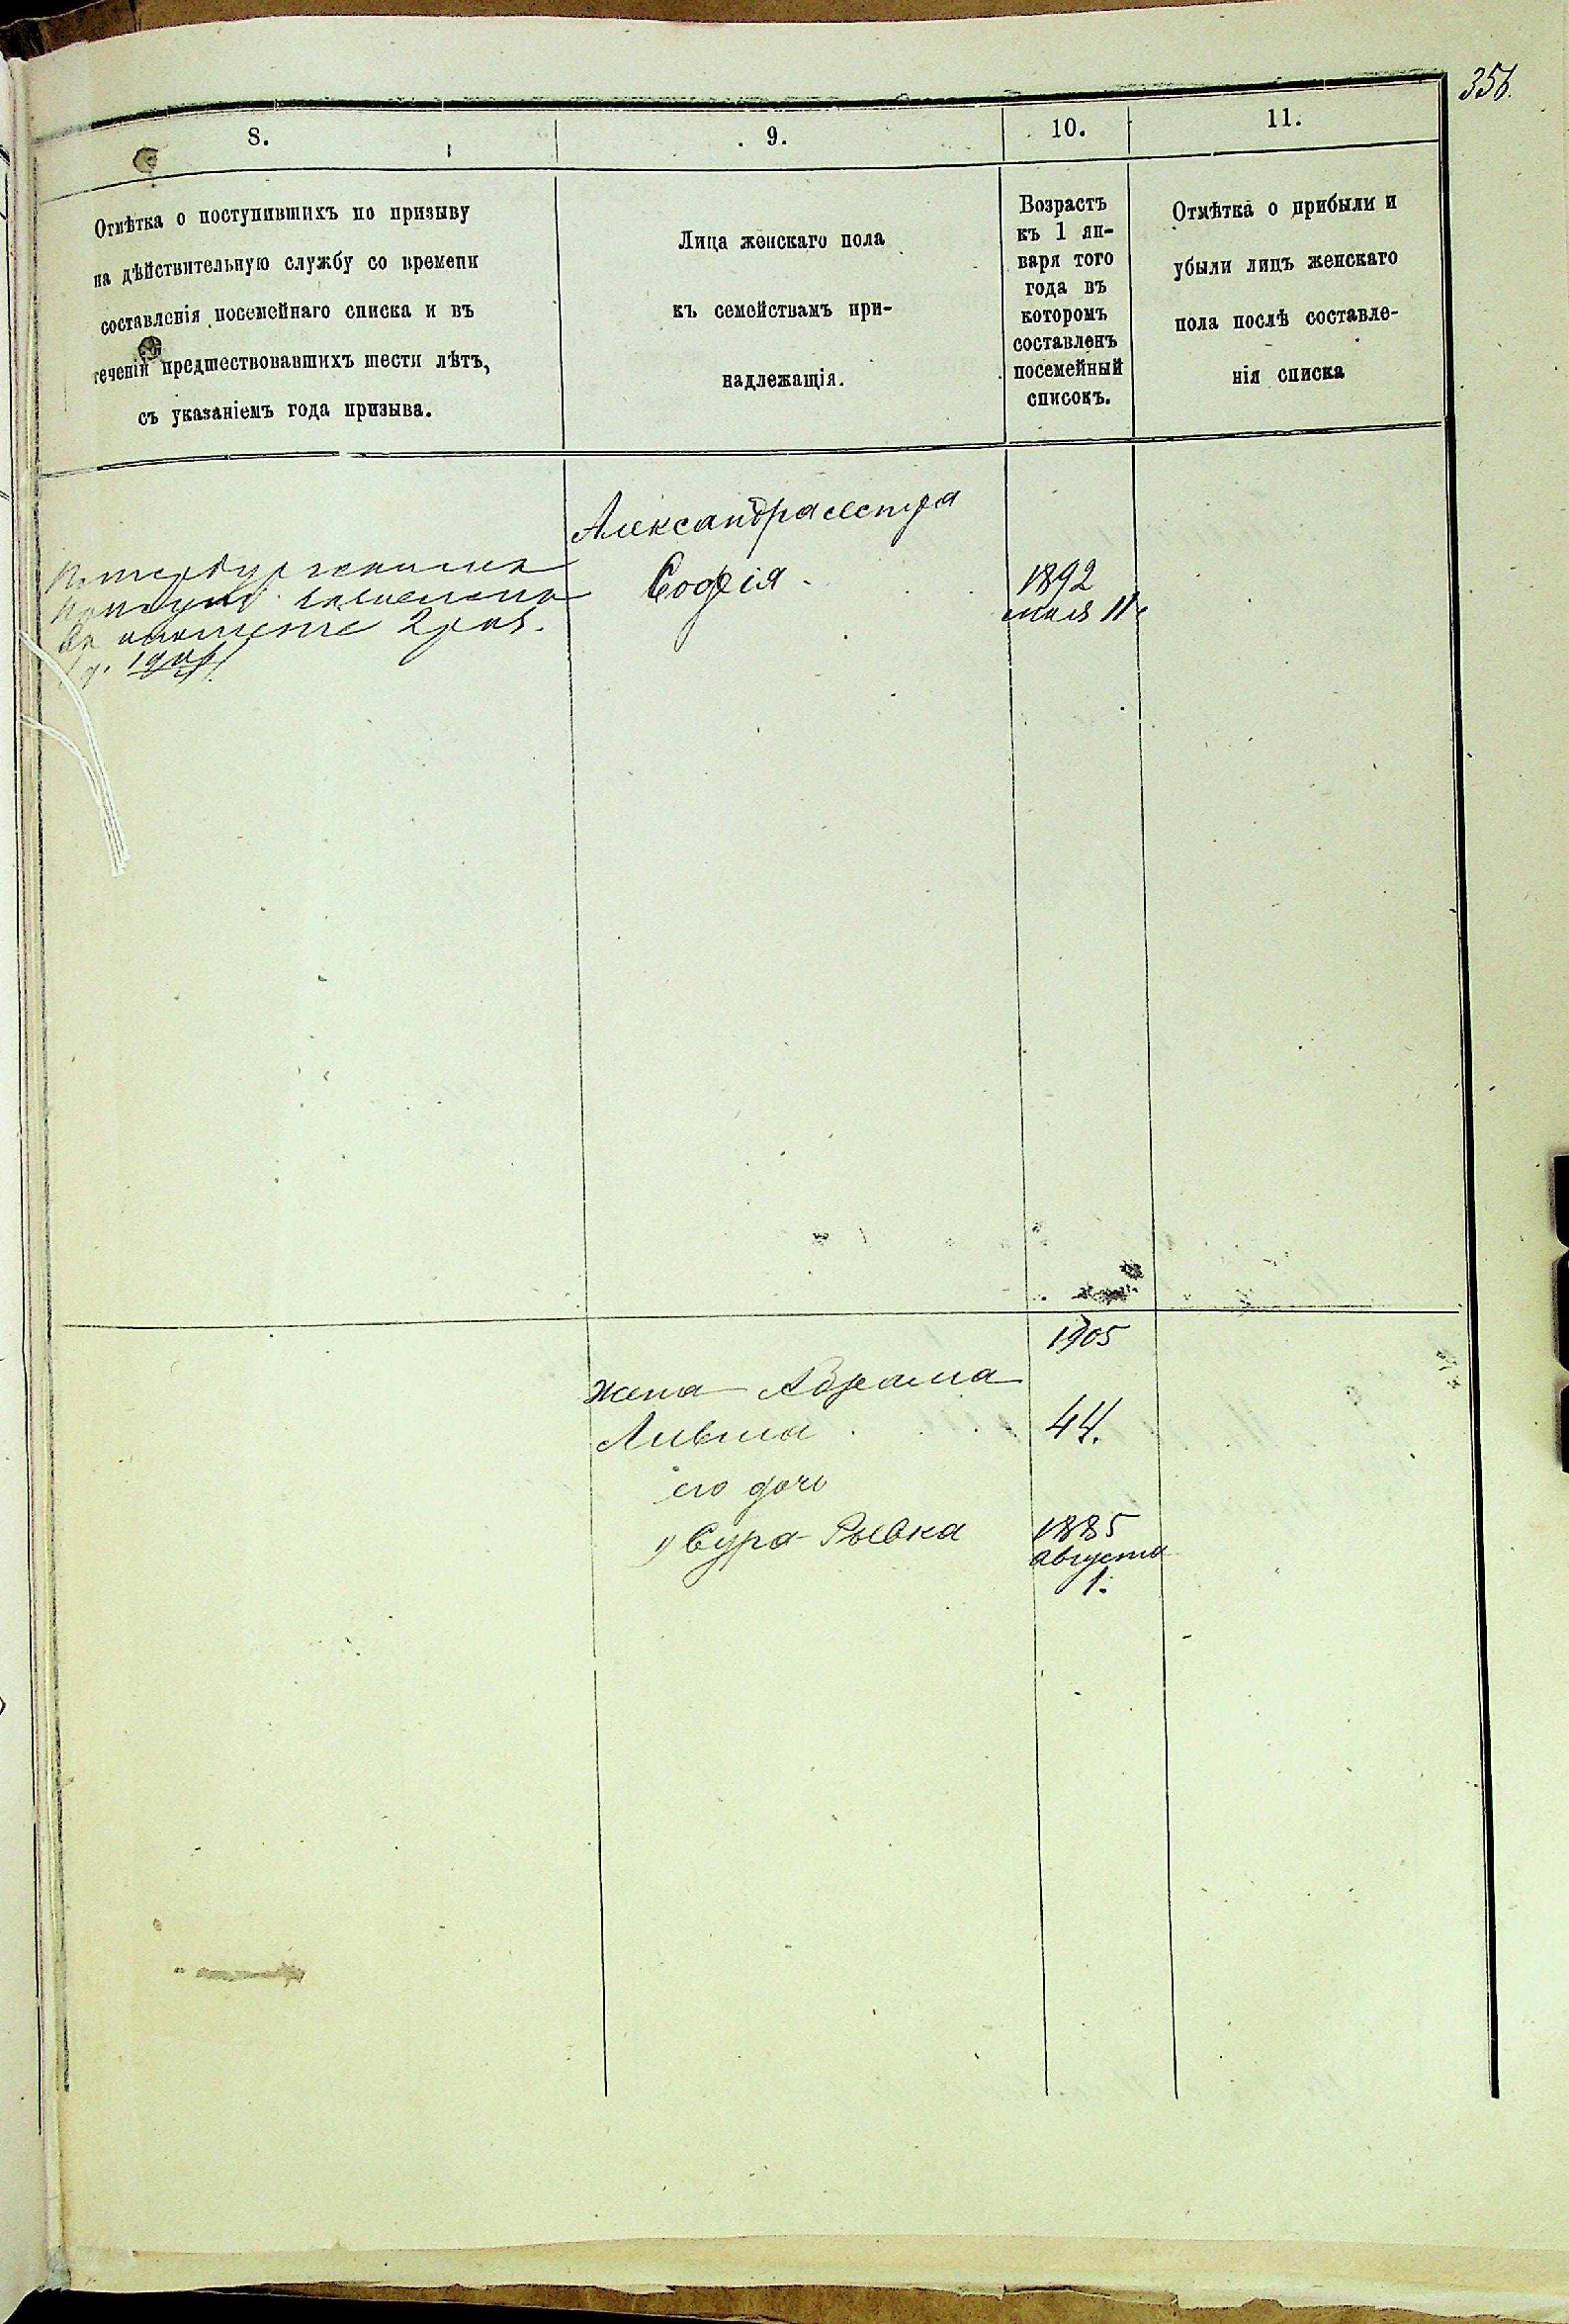 356.
8.
9.
10.
11.
Отмѣтка о поступившихъ по призыву
на дѣйствительную службу со времени
составленія посемейнаго списка и въ
теченіи предшествовавшихъ шести лѣтъ,
съ указаніемъ года призыва.
Лица женскаго пола
къ семействамъ при-
надлежащія.
Возрастъ
къ 1 ян-
варя того
года въ
которомъ
составленъ
посемейный
списокъ.
Отмѣтка о прибыли и
убыли лицъ женскаго
пола послѣ составле-
нія списка
Александра сестра
Софія
1892
мая 11
2 раз.
1905
жена Абрама
Ливша
44.
его дочь
1) Сура-Рывка
1885
августа
1.